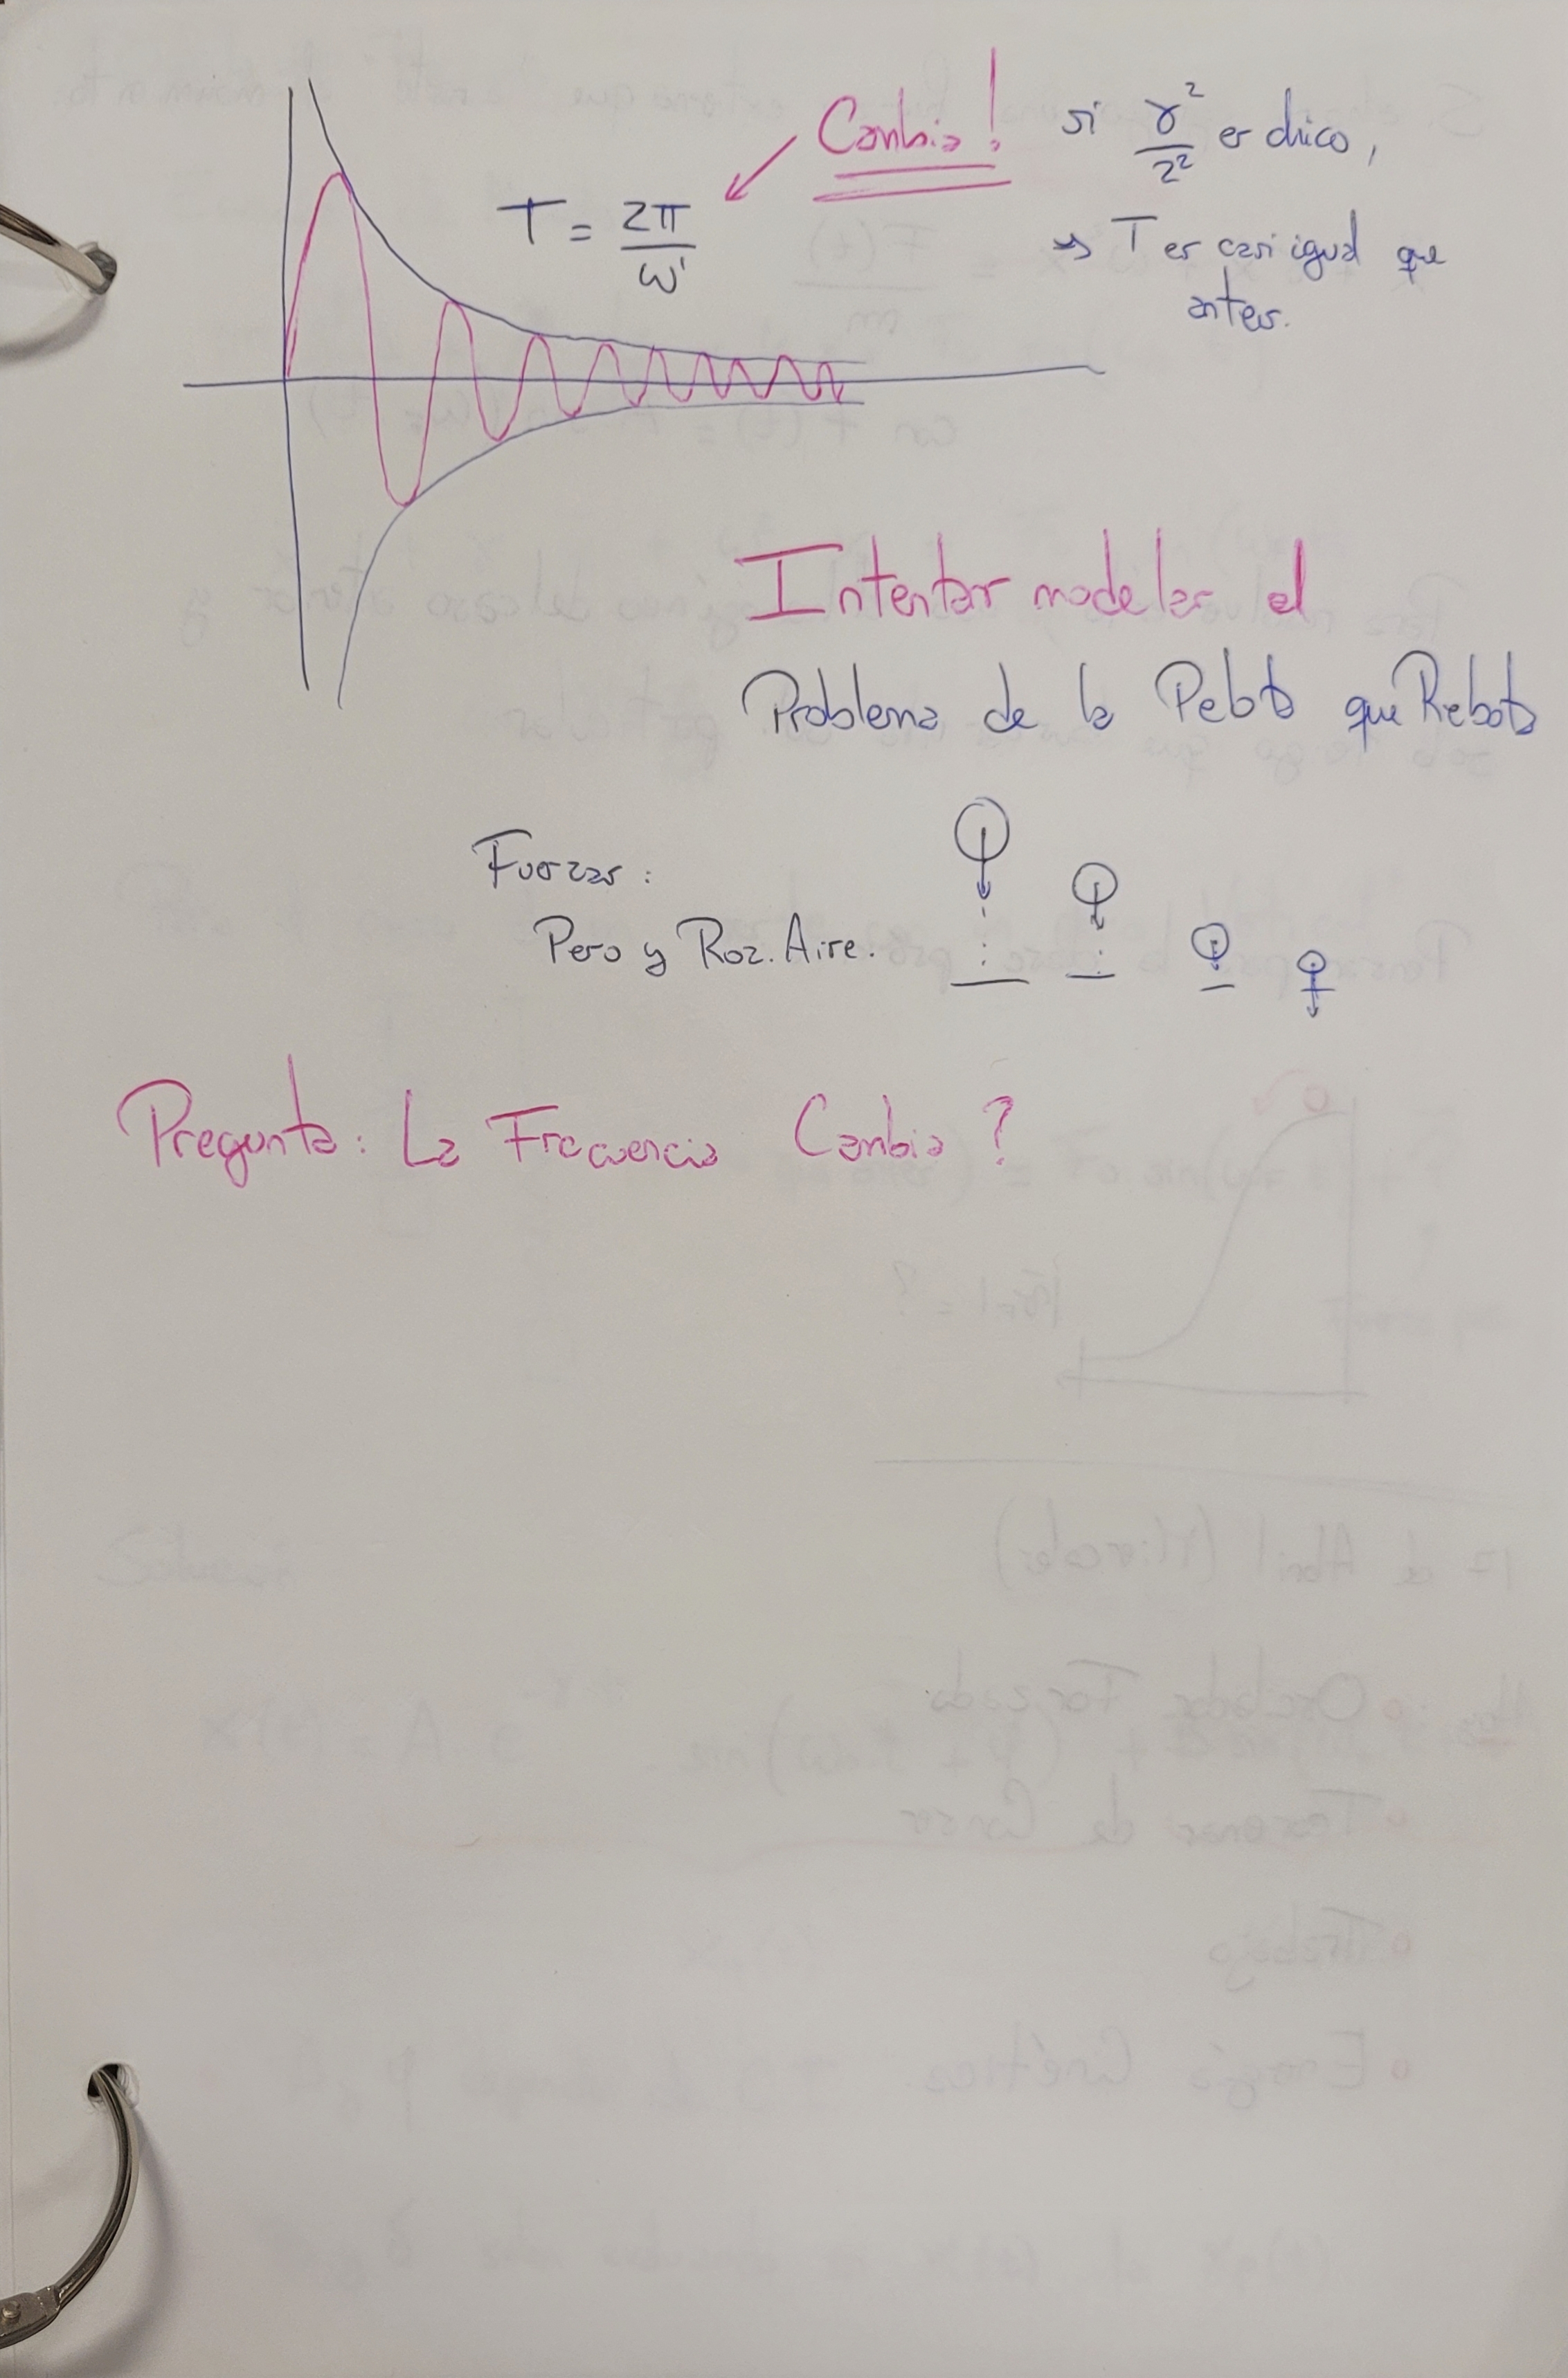 Cambia! si γ²/2² es chico,
T = 2π/ω'
⇒ T es casi igual que
antes.
Intentar modelar el
Problema de la Pelota que Rebota
Fuerzas:
Peso y Roz. Aire.
Pregunta: La Frecuencia Cambia?